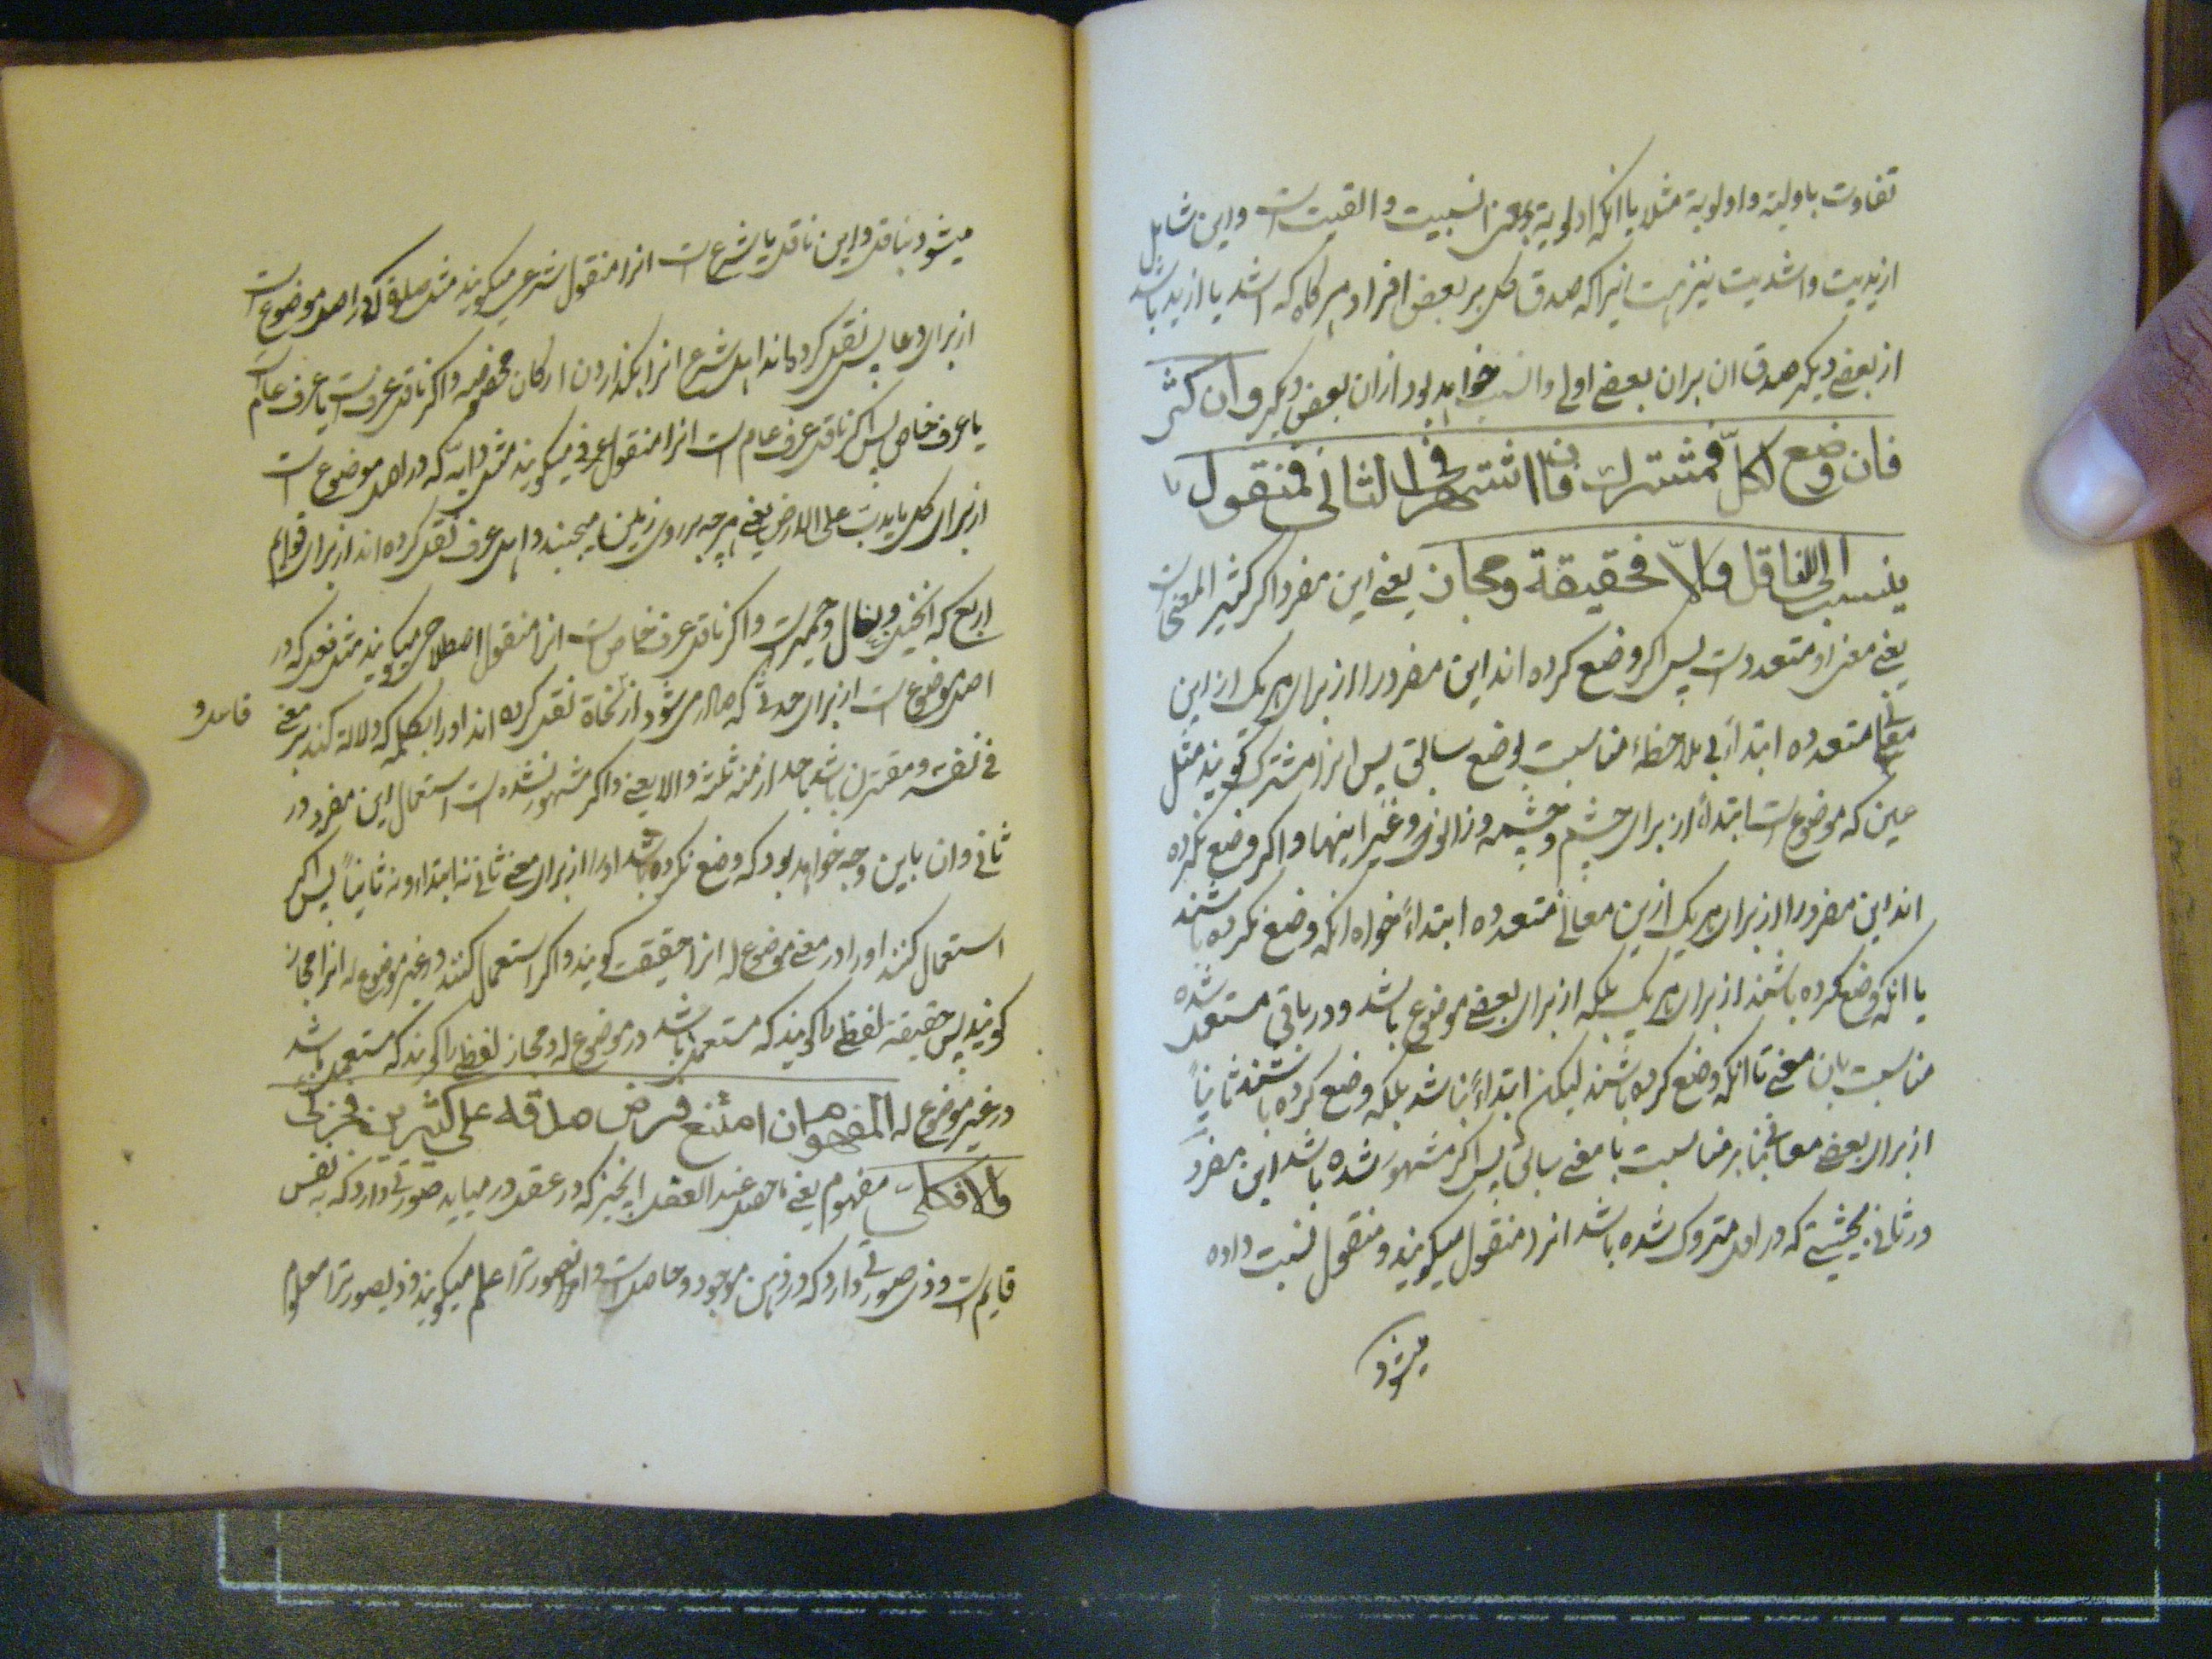 تفاوت باولیة و اولویة مثلا یا انکه اولویة بمعنی انسبیت و الیقیت است و این شامل
ازیدیت و اشدیت نیز هست زیرا که صدق کلی بر بعض افراد هر کاه که اشد یا ازید باشد
از بعضی دیکر صدق ان بران بعضی اولی و انسب خواهد بود از ان بعض دیکر وان کثر
فان وضع لکلّ فمشترک فان اشتهر فی الثانی فمنقول
ینسب الی الناقل والاّ فحقیقة ومجاز یعنی این مفرد اکر کثیر المعنی است
یعنی معنی او متعدد است پس اکر وضع کرده اند این مفرد را از برای هر یک از این
معانی متعدده ابتداً بی ملاحظهٔ مناسبت بوضع سابق پس انرا مشترک کویند مثل
عین که موضوع است ابتداءً از برای چشم و چشمه و زانو و غیر اینها و اکر وضع نکرده
اند این مفرد را از برای هر یک ازین معانی متعدده ابتداءً خواه انکه وضع نکرده باشند
یا انکه وضع کرده باشند از برای هر یک بلکه از برای بعضی موضوع باشد و در باقی مستعمل شده
مناسبت بان معنی تا انکه وضع کرده باشند لیکن ابتداءً نباشد بلکه وضع کرده باشند ثانیاً
از برای بعضی معانی بنا بر مناسبت با معنی سابق پس اکر مشهور شده باشد این مفرد
در ثانی بحیثیتی که در اول متروک شده باشد انرا منقول میکویند و منقول نسبت داده
میشود
میشود بناقل و این ناقل یا شرع است انرا منقول شرعی میکویند مثل صلوة که در اصل موضوع است
از برای دعا پس نقل کرده اند اهل شرع انرا بکذاردن ارکان مخصوصه و اکر ناقل عرفست یا عرف عام است
یا عرف خاص پس اکر ناقل عرف عام است انرا منقول عرفی میکویند مثل دابّه که در اصل موضوع است
از برای کل ما یدبّ علی الارض یعنی هر چه بر روی زمین میجنبد و اهل عرف نقل کرده اند از برای قوایم
اربع که ان خیل و بغال و حمیر است و اکر ناقل عرف خاص است انرا منقول اصطلاحی میکویند مثل فعل که در
اصل موضوع است از برای حدثی که صادر می شود از فاعل و نحاة نقل کرده اند او را بکلمه که دلالة کند بر معنی
فی نفسه و مقترن باشد باحد ازمنه ثلثه و الا یعنی و اکر مشهور نشده است استعمال این مفرد در
ثانی و ان باین وجه خواهد بود که وضع نکرده باشند او را از برای معنی ثانی نه ابتداء و نه ثانیاً پس اکر
استعمال کنند او را در معنی موضوع له انرا حقیقت کویند و اکر استعمال کنند در غیر موضوع له انرا مجاز
کویند پس حقیقة لفظی را کویند که مستعمل باشد در موضوع له و مجاز لفظی را کویند که مستعمل باشد
در غیر موضوع له المفهوم ان امتنع فرض صدقه علی کثیرین فجزئی
والا فکلی مفهوم یعنی ما حصل عند العقل هر چیز که در عقل در میاید صورتی دارد که به نفس
قایم است و ذی صورتی دارد که در ذهن موجود و حاصل است و ان صورترا علم میکویند و ذی صورترا معلوم